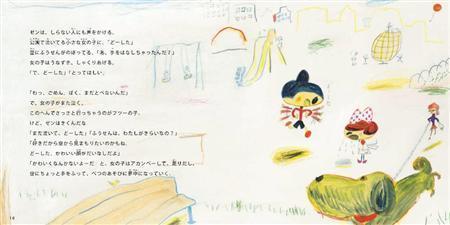 ゼンは、しらない人にも声をかける。
公園で泣いてる小さな女の子に、「どーした」
空にふうせんがのぼってる、「あ、手をはなしちゃったんだ？」
女の子はうなずき、しゃくりあげる。
「で、どーした」「とってほしい」
「わっ、ごめん、ぼく、まだとべないんだ」
で、女の子がまた泣く。
このへんでさっさと行っちゃうのがフツーの子。
けど、ゼンはきくんだな
「まだ泣いて、どーした」「ふうせんは、わたしがきらいなの？」
「好きだから空から見まもりたいのかもね。
どーした、かわいい顔がだいなしだよ」
「かわいくなんかないよーだ」と、女の子はアカンベーして、走りだし、
空にちょっと手をふって、べつのあそびに夢中になっていく。
14